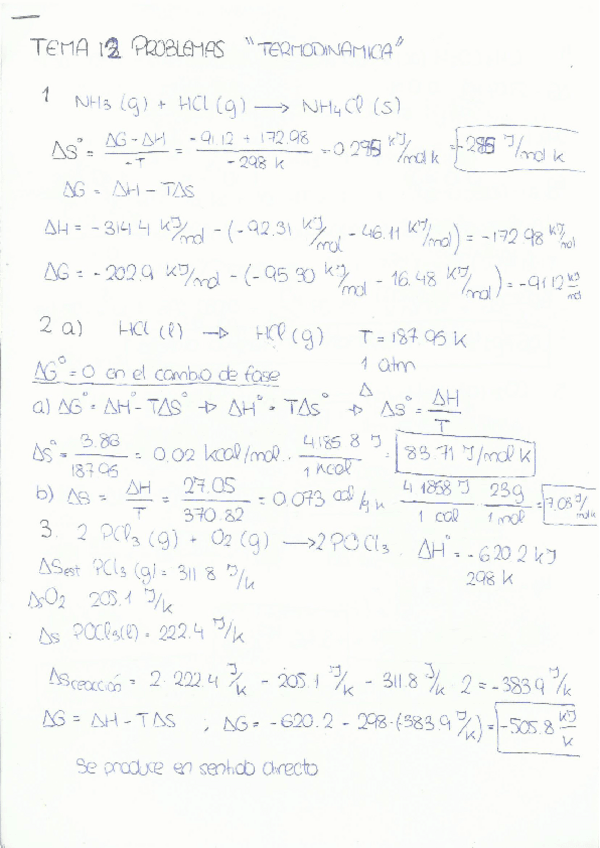 TEMA 12 PROBLEMAS "TERMODINAMICA"
1 NH3 (g) + HCl (g) → NH4Cl (s)
ΔS° = ΔG - ΔH / -T = -91.12 + 172.98 / -298 k = -0.285 kJ/mol k = -285 J/mol k
ΔG = ΔH - TΔS
ΔH = -314.4 kJ/mol - (-92.31 kJ/mol - 46.11 kJ/mol) = -172.98 kJ/mol
ΔG = -202.9 kJ/mol - (-95.30 kJ/mol - 16.48 kJ/mol) = -91.12 kJ/mol
2 a) HCl (l) → HCl (g) T = 187.95 k
1 atm
ΔG° = 0 en el cambio de fase
a) ΔG° = ΔH° - TΔS° → ΔH° = TΔS° → ΔS° = ΔH / T
ΔS° = 3.86 / 187.95 = 0.02 kcal/mol · 4185.8 J / 1 kcal = 83.71 J/mol k
b) ΔS = ΔH / T = 27.05 / 370.82 = 0.073 cal/g k 4.1858 J / 1 cal 23g / 1 mol = 7.03 J/mol k
3. 2 PCl3 (g) + O2 (g) → 2 POCl3. ΔH° = -620.2 kJ
298 k
ΔSest PCl3 (g) = 311.8 J/k
ΔsO2 205.1 J/k
Δs POCl3(l) = 222.4 J/k
ΔSreacción = 2·222.4 J/k - 205.1 J/k - 311.8 J/k · 2 = -383.9 J/k
ΔG = ΔH - TΔS ; ΔG = -620.2 - 298·(383.9 J/k) = -505.8 kJ/k
Se produce en sentido directo